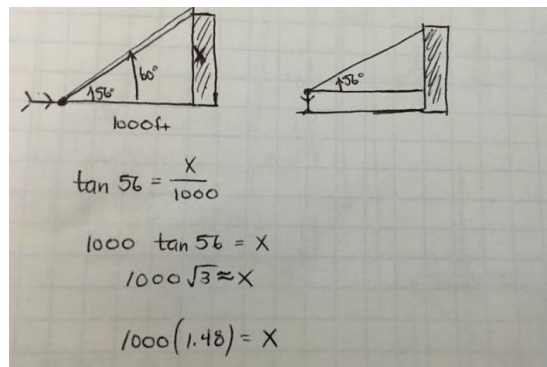 60°
56°
X
1000ft
56°
tan 56 = X/1000
1000 tan 56 = X
1000 √3 ≈ X
1000(1.48) = X